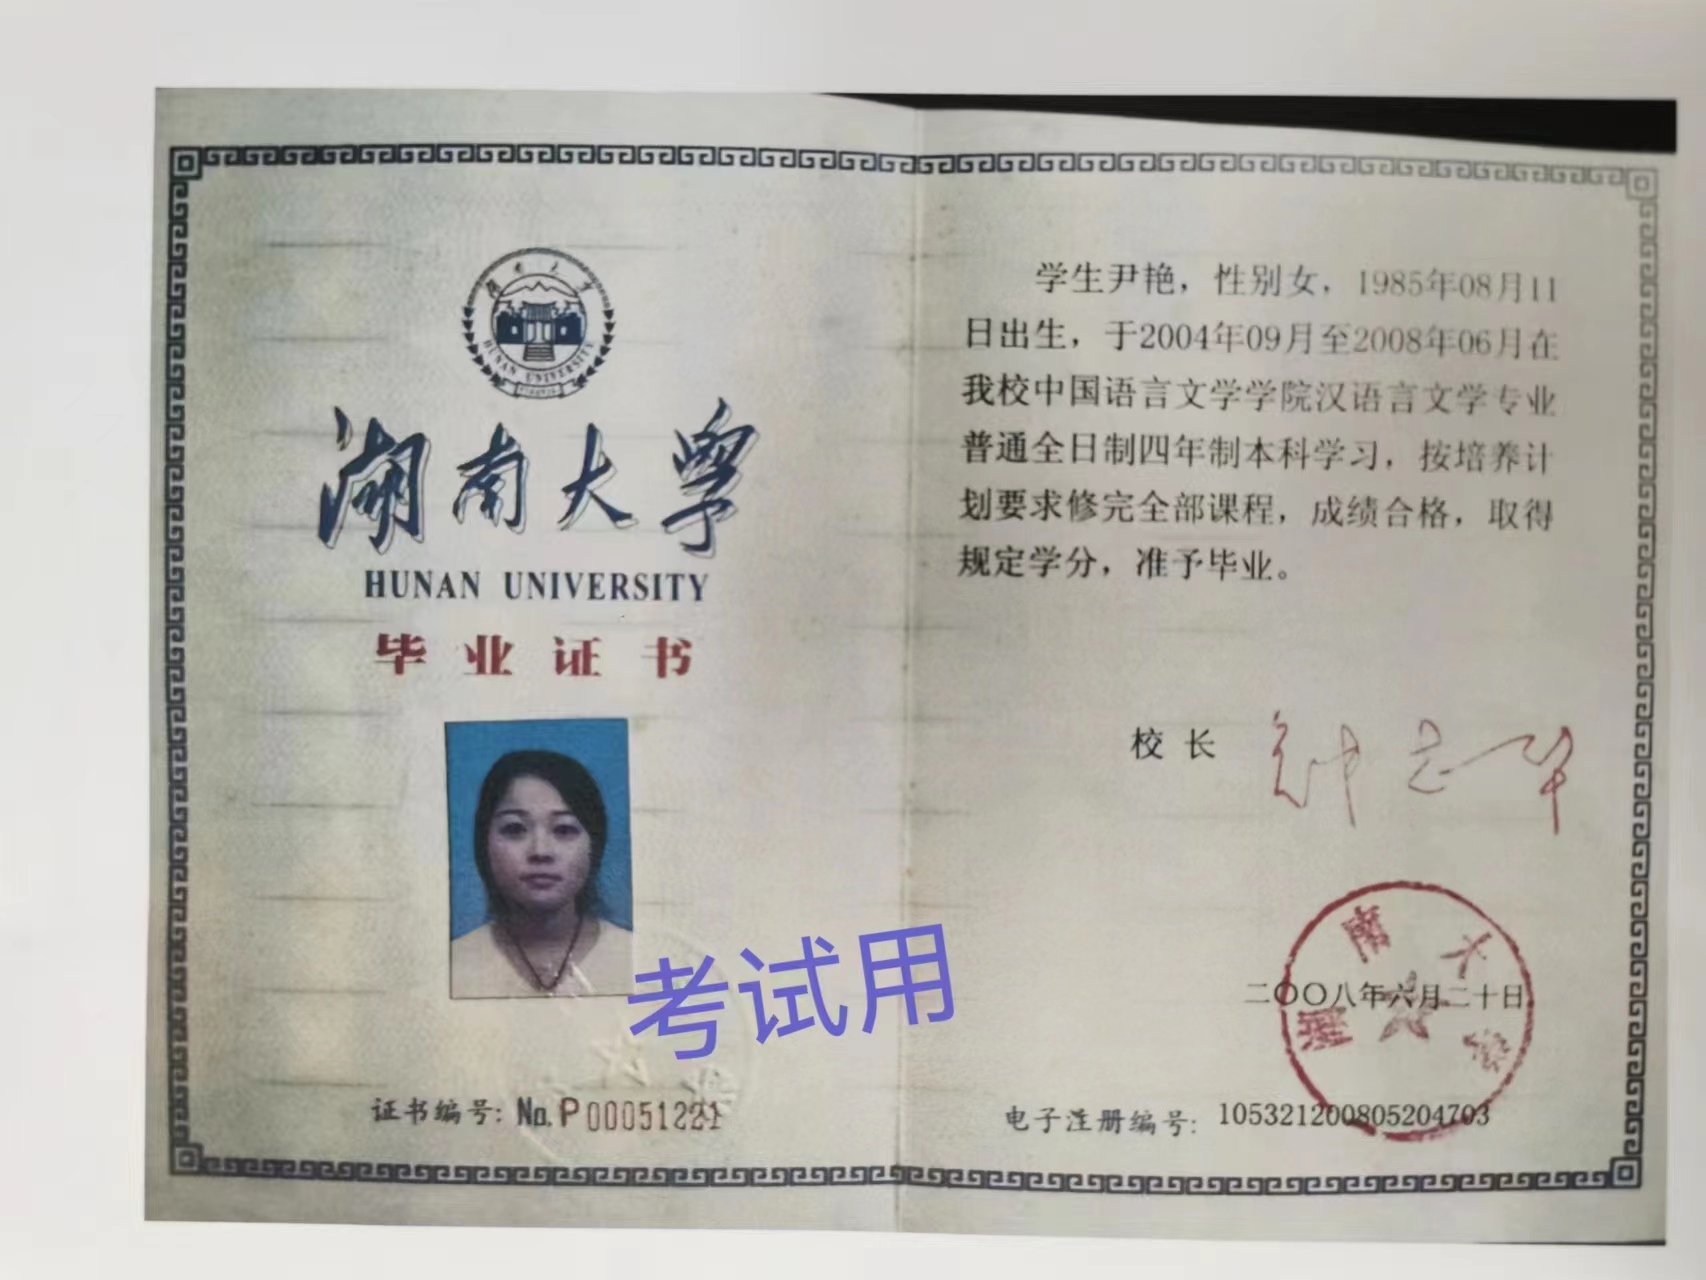 湖南大学
HUNAN UNIVERSITY
湖南大学
HUNAN UNIVERSITY
毕业证书
考试用
证书编号：No. P00051221
学生尹艳，性别女，1985年08月11
日出生，于2004年09月至2008年06月在
我校中国语言文学学院汉语言文学专业
普通全日制四年制本科学习，按培养计
划要求修完全部课程，成绩合格，取得
规定学分，准予毕业。
校长 钟志华
湖南大学
二〇〇八年六月二十日
电子注册编号：105321200805204703